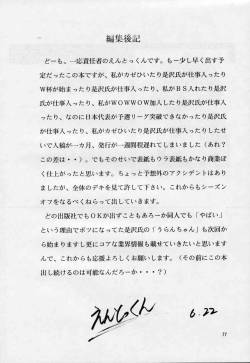 編集後記
どーも、一応責任者のえんとっくんです。もー少し早く出す予
定だったこの本ですが、私がカゼひいたり是沢氏が仕事入ったり
W杯が始まったり是沢氏が仕事入ったり、私がＢＳ入れたり是沢
氏が仕事入ったり、私がＷＯＷＯＷ加入したり是沢氏が仕事入
ったり、なのに日本代表が予選リーグ突破できなかったり是沢氏
が仕事入ったり、私がカゼひいたり是沢氏が仕事入ったりしたせ
いで入稿が一カ月、発行が一週間程遅れてしまいました（あれ？
この差は・・）。でもそのせいで表紙もウラ表紙もかなり商業ぽ
く仕上がったと思います。ちょっと予想外のアクシデントはあり
ましたが、全体のデキを見て許して下さい。これからもシーズン
オフをなるべくねらって出していきます。
どの出版社でもＯＫが出ずこともあろーか同人でも「やばい」
という理由でボツになってた是沢氏の「うらんちゃん」も次回か
ら始まりますし更にコアな業界情報も載せていきたいと思います
んで、これからも応援よろしくお願いします。（その前にこの本
出し続けるのは可能なんだろーか・・・？）
えんとっくん 6.22
77